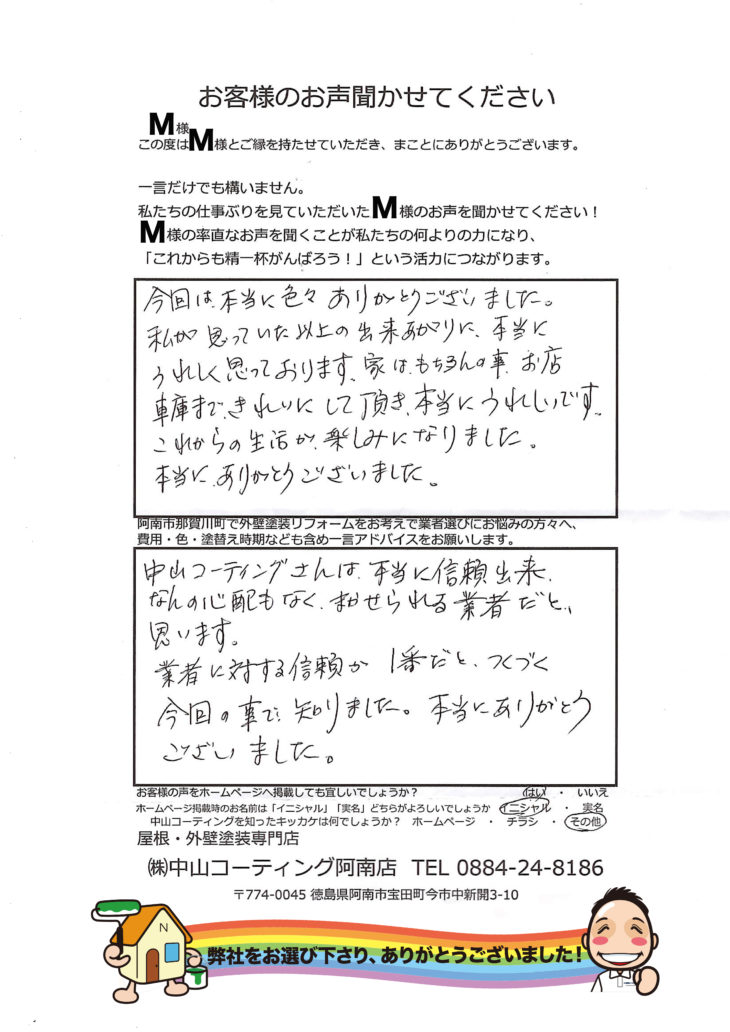 お客様のお声聞かせてください
M様
この度はM様とご縁を持たせていただき、まことにありがとうございます。
一言だけでも構いません。
私たちの仕事ぶりを見ていただいたM様のお声を聞かせてください！
M様の率直なお声を聞くことが私たちの何よりの力になり、
「これからも精一杯がんばろう！」という活力につながります。
今回は、本当に色々ありがとうございました。
私が思っていた以上の出来あがりに、本当に
うれしく思っております。家は、もちろんの事、お店
車庫まで、きれいにして頂き、本当にうれしいです。
これからの生活が、楽しみになりました。
本当に、ありがとうございました。
阿南市那賀川町で外壁塗装リフォームをお考えで業者選びにお悩みの方々へ、
費用・色・塗替え時期なども含め一言アドバイスをお願いします。
中山コーティングさんは、本当に信頼出来、
なんの心配もなく、まかせられる業者だと、
思います。
業者に対する信頼が1番だと、つくづく
今回の事で、知りました。本当にありがとう
ございました。
お客様の声をホームページへ掲載しても宜しいでしょうか？ はい ・ いいえ
ホームページ掲載時のお名前は「イニシャル」「実名」どちらがよろしいでしょうか イニシャル ・ 実名
中山コーティングを知ったキッカケは何でしょうか？ ホームページ ・ チラシ ・ その他
屋根・外壁塗装専門店
㈱中山コーティング阿南店 TEL 0884-24-8186
〒774-0045 徳島県阿南市宝田町今市中新開3-10
N
弊社をお選び下さり、ありがとうございました！